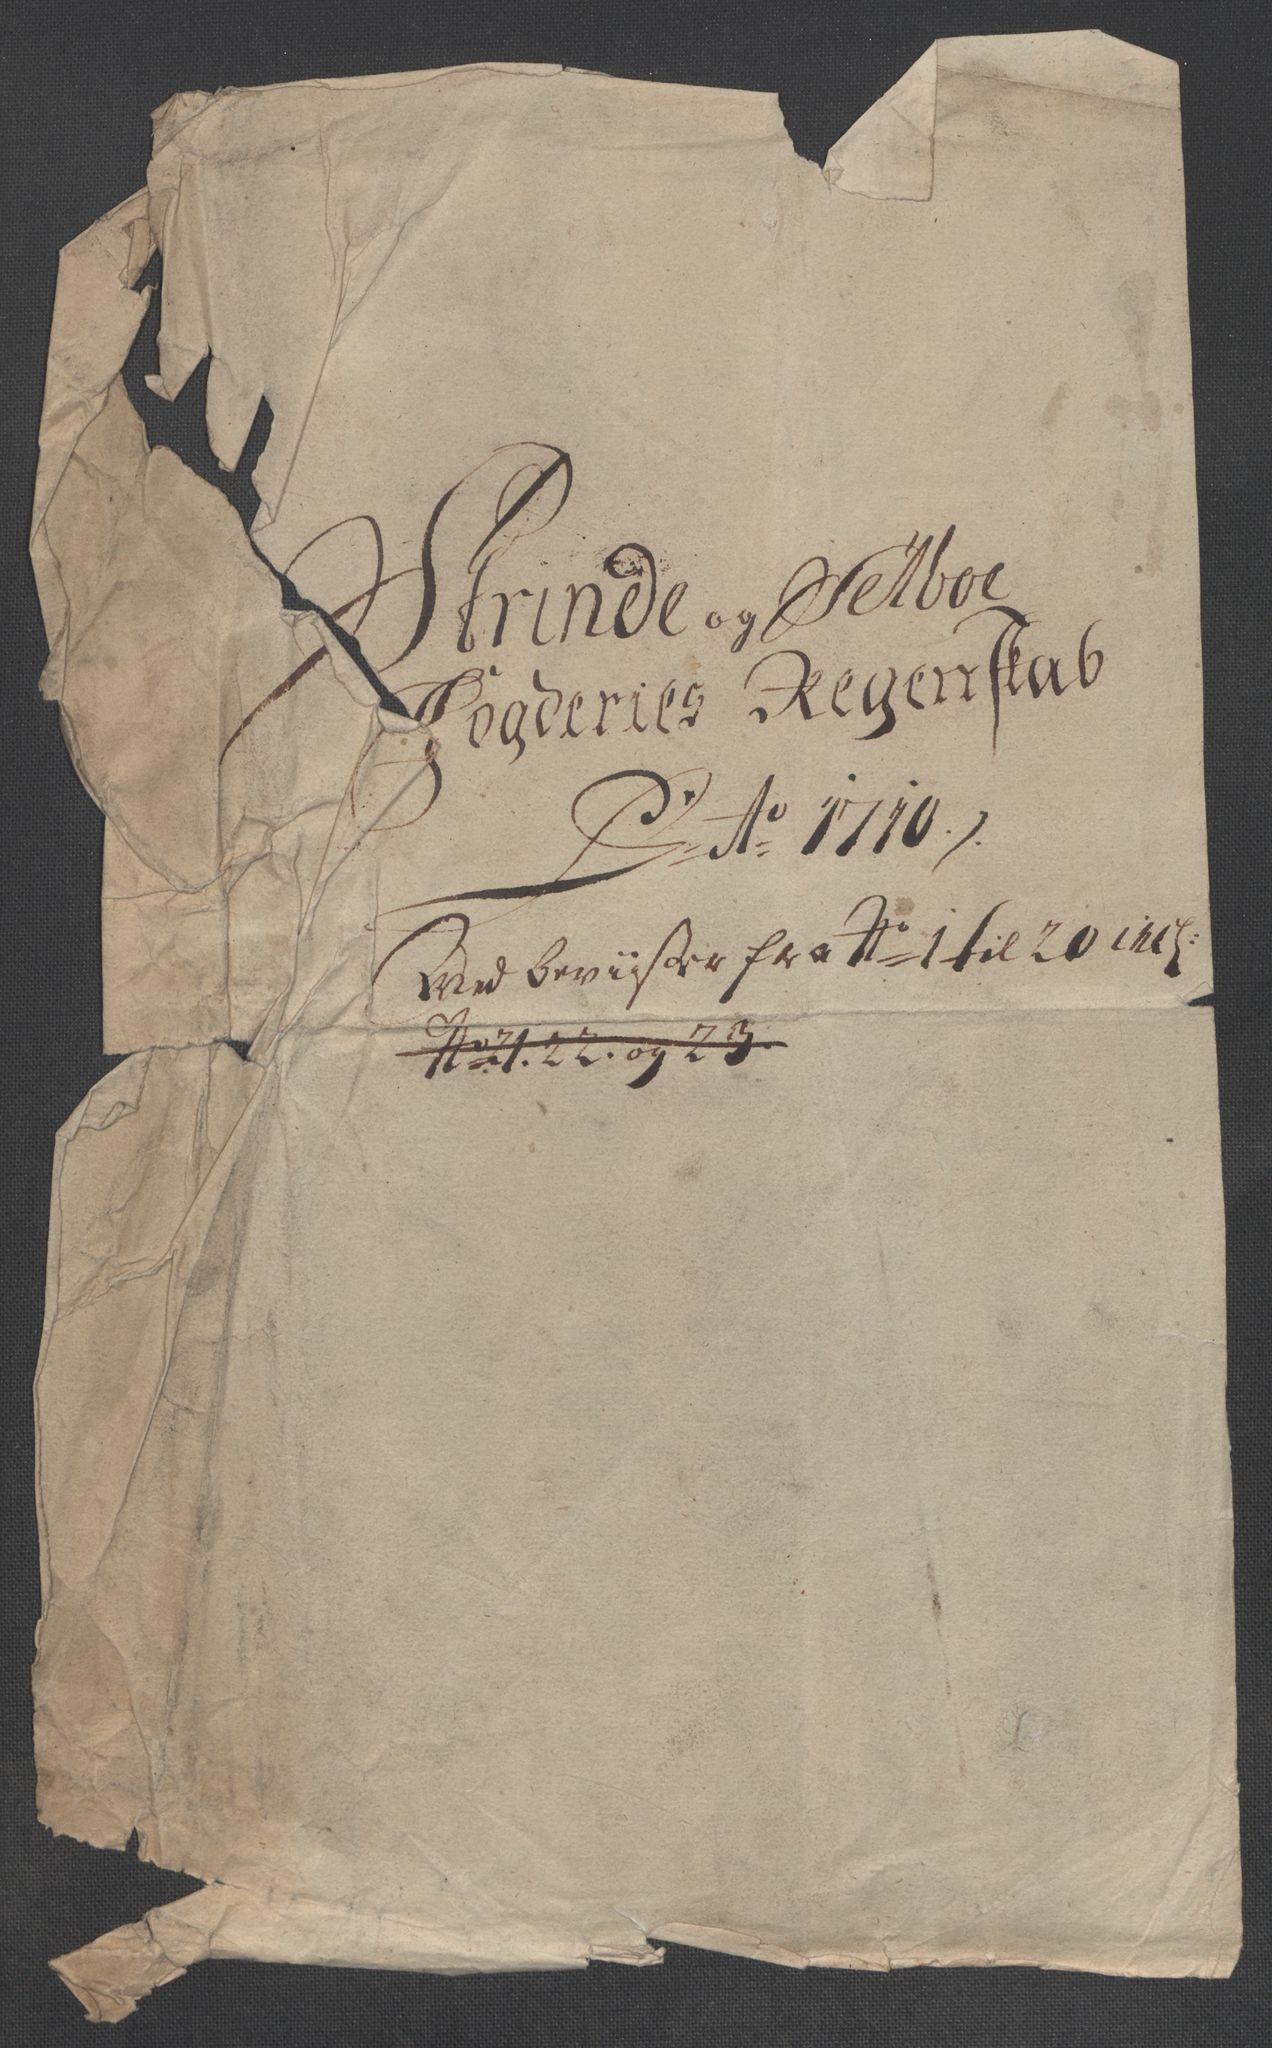 Strinde og Selboe
Fogderies Regenskab
Pr Ao 1710.
Med beviister fra No 1 til 20 incl:
No 21. 22. og 23.